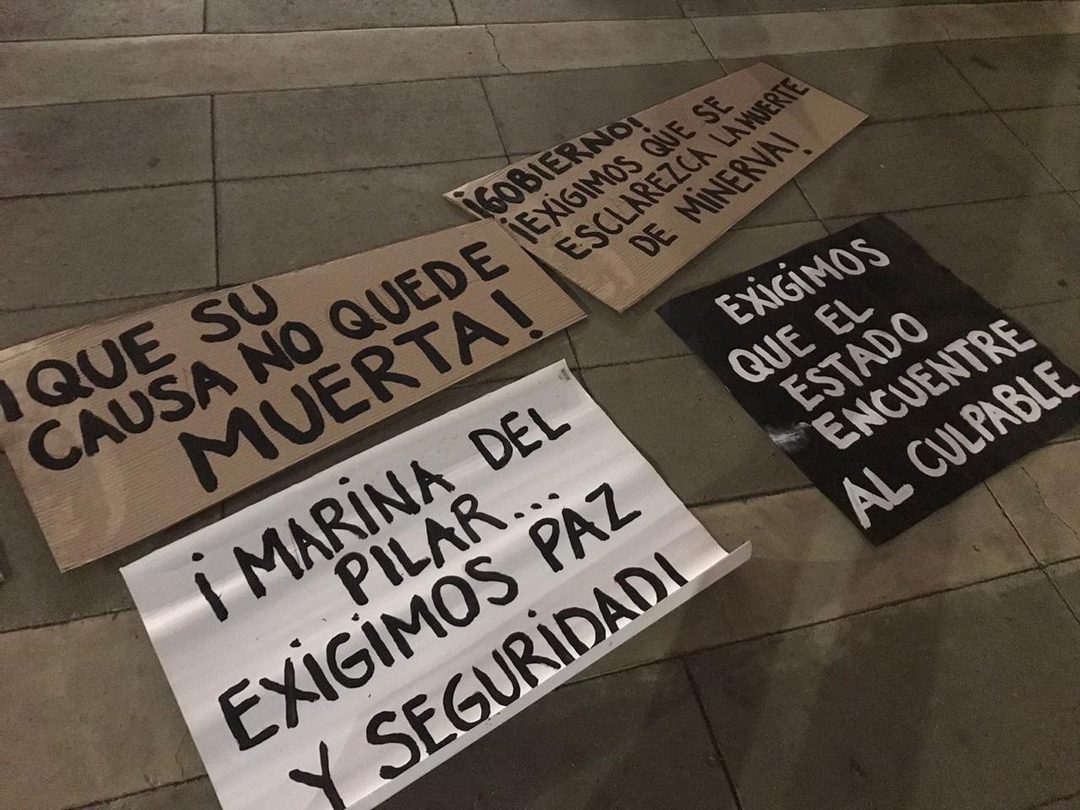 ¡GOBIERNO!
¡EXIGIMOS QUE SE
ESCLAREZCA LA MUERTE
DE MINERVA!
¡QUE SU
CAUSA NO QUEDE
MUERTA!
EXIGIMOS
QUE EL
ESTADO
ENCUENTRE
AL CULPABLE
¡MARINA DEL
PILAR...
EXIGIMOS PAZ
Y SEGURIDAD!